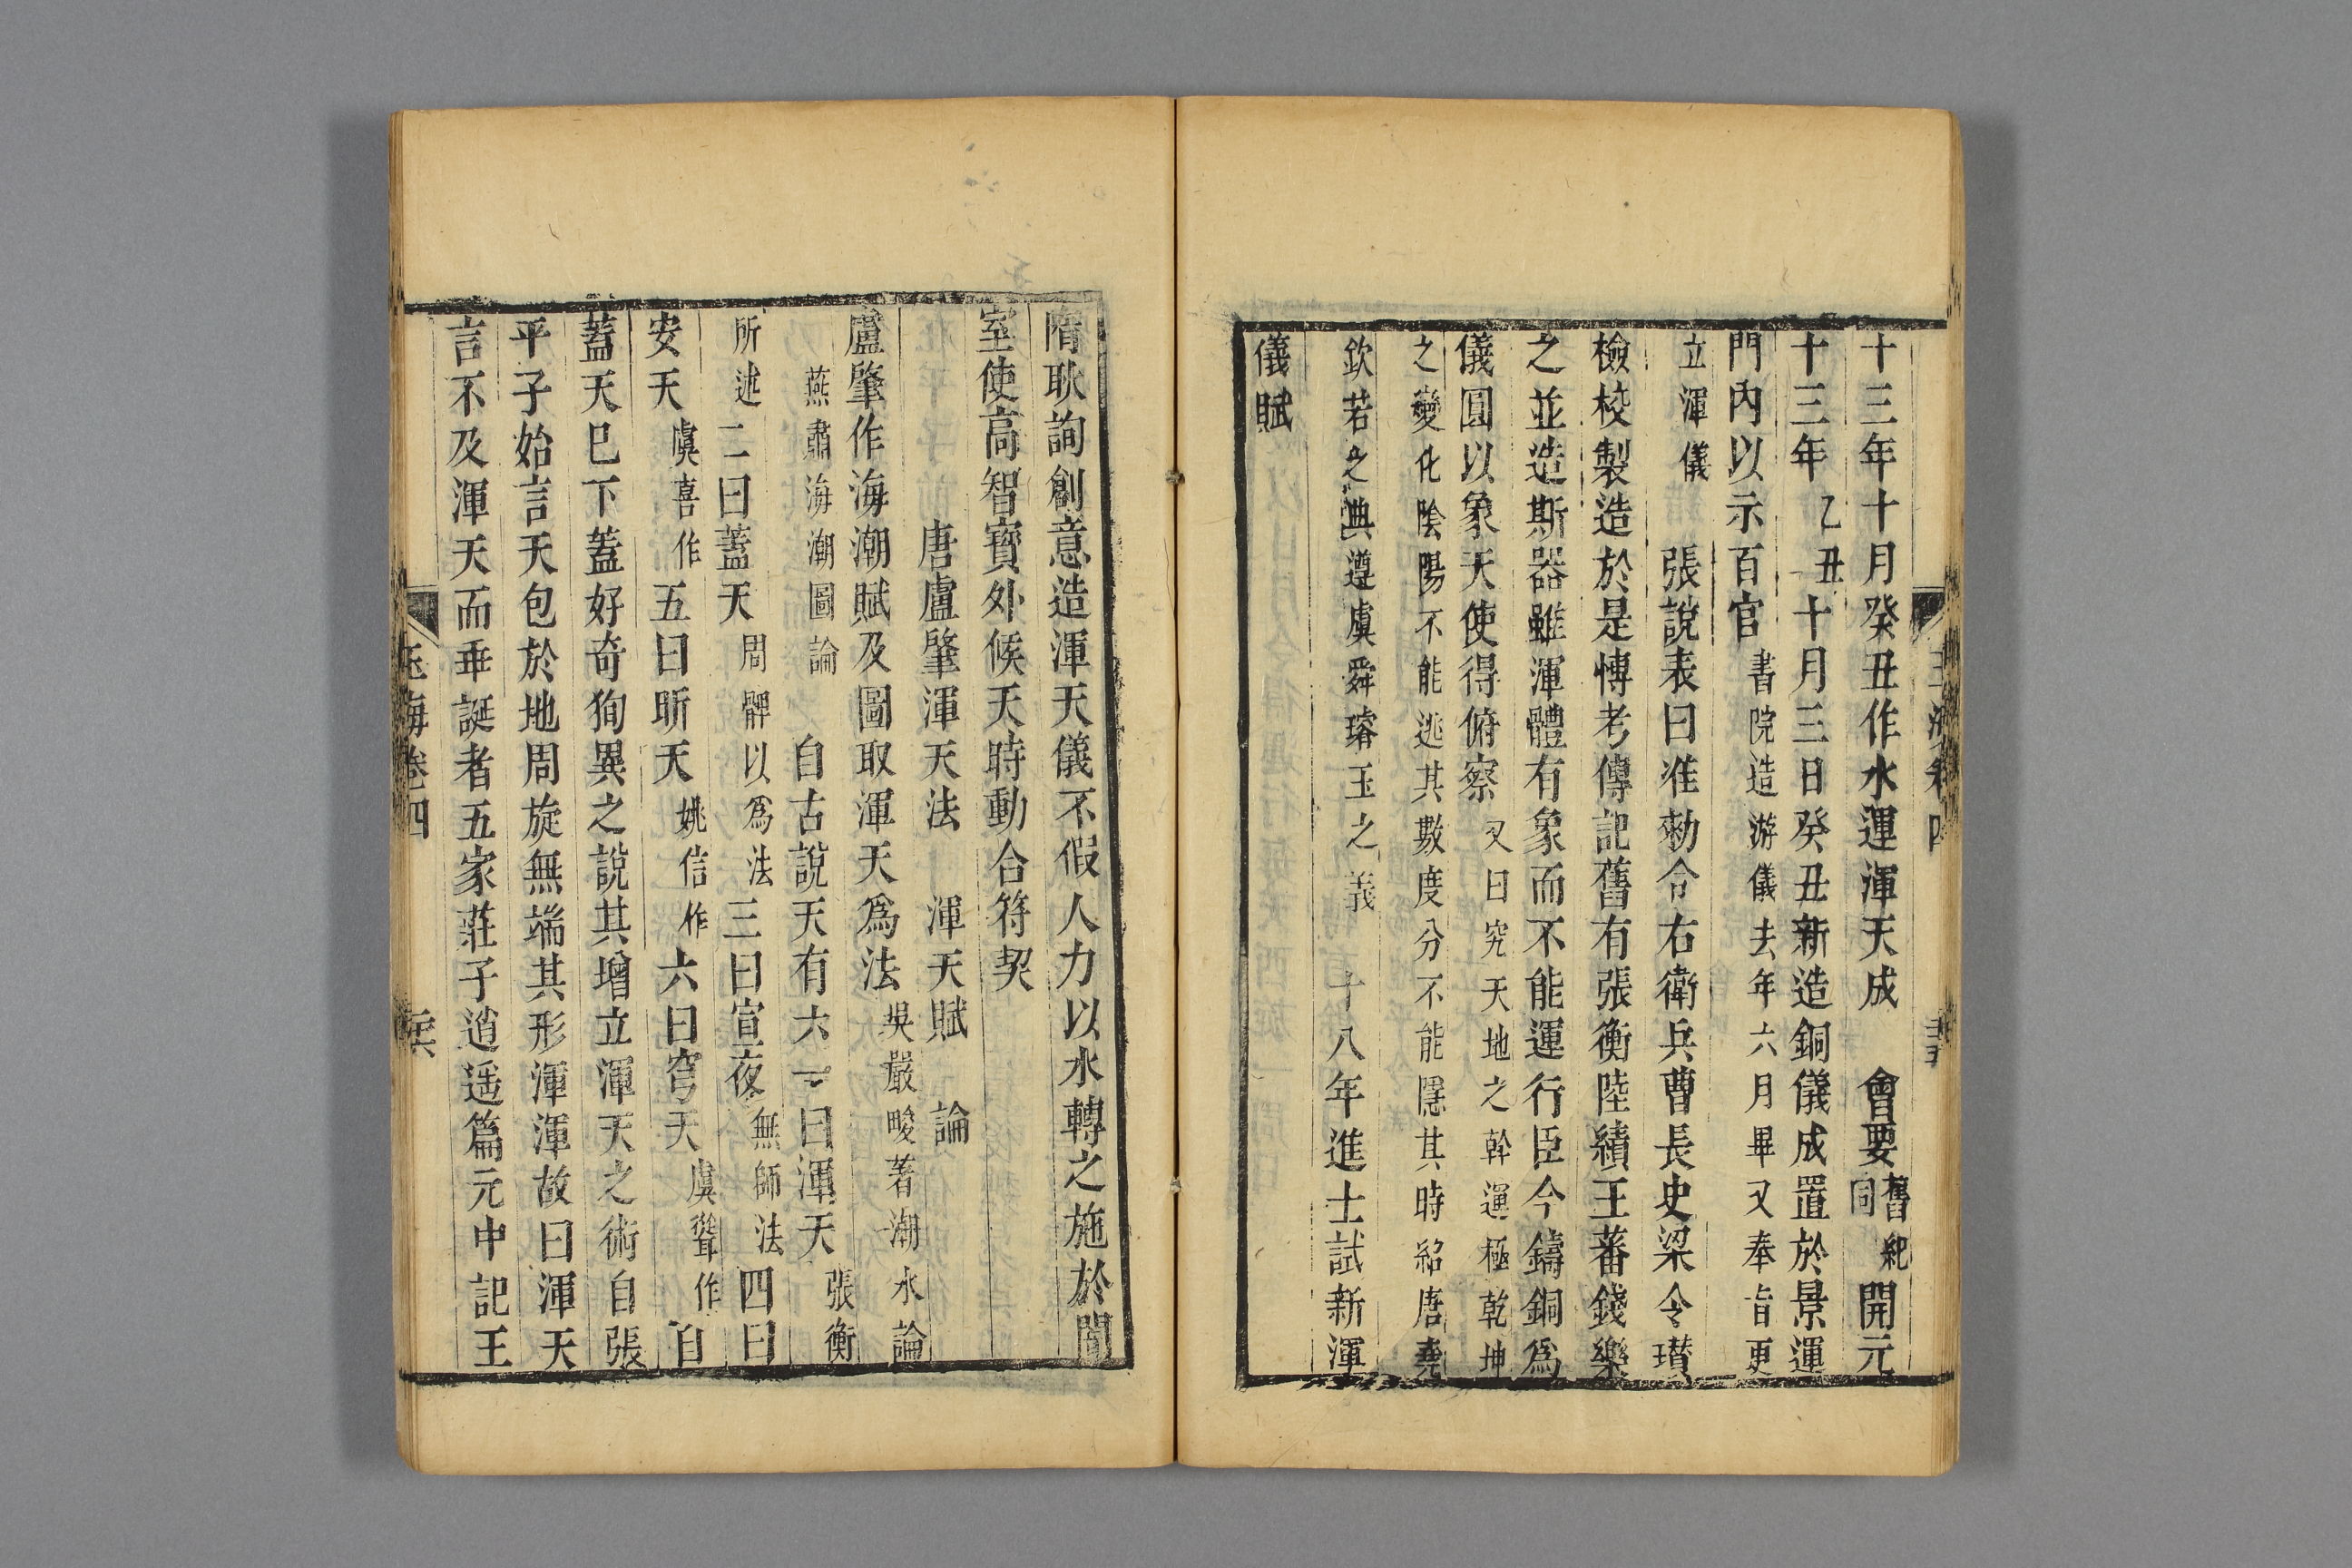 十三年十月癸丑作水運渾天成　會要同舊紀開元
十三年乙丑十月三日癸丑新造銅儀成置於景運
門內以示百官書院造游儀去年六月畢又奉旨更
立渾儀　張說表曰准勑令右衛兵曹長史梁令瓚
檢校製造於是博考傳記舊有張衡陸績王蕃錢樂
之並造斯器雖渾體有象而不能運行臣今鑄銅爲
儀圓以象天使得俯察又曰究天地之幹運極乾坤
之變化陰陽不能逃其數度分不能隱其時紹唐堯
欽若之典遵虞舜璿玉之義　十八年進士試新渾
儀賦
隋耿詢創意造渾天儀不假人力以水轉之施於闇
室使高智寶外候天時動合符契
唐盧肇渾天法　渾天賦　論
盧肇作海潮賦及圖取渾天爲法吳嚴畯著潮水論
燕肅海潮圖論　自古說天有六一曰渾天張衡
所述二曰蓋天周髀以爲法三曰宣夜無師法四曰
安天虞喜作五曰昕天姚信作六曰穹天虞聳作自
蓋天已下蓋好奇狥異之說其增立渾天之術自張
平子始言天包於地周旋無端其形渾渾故曰渾天
言不及渾天而乖誕者五家莊子逍遥篇元中記王
玉海卷四